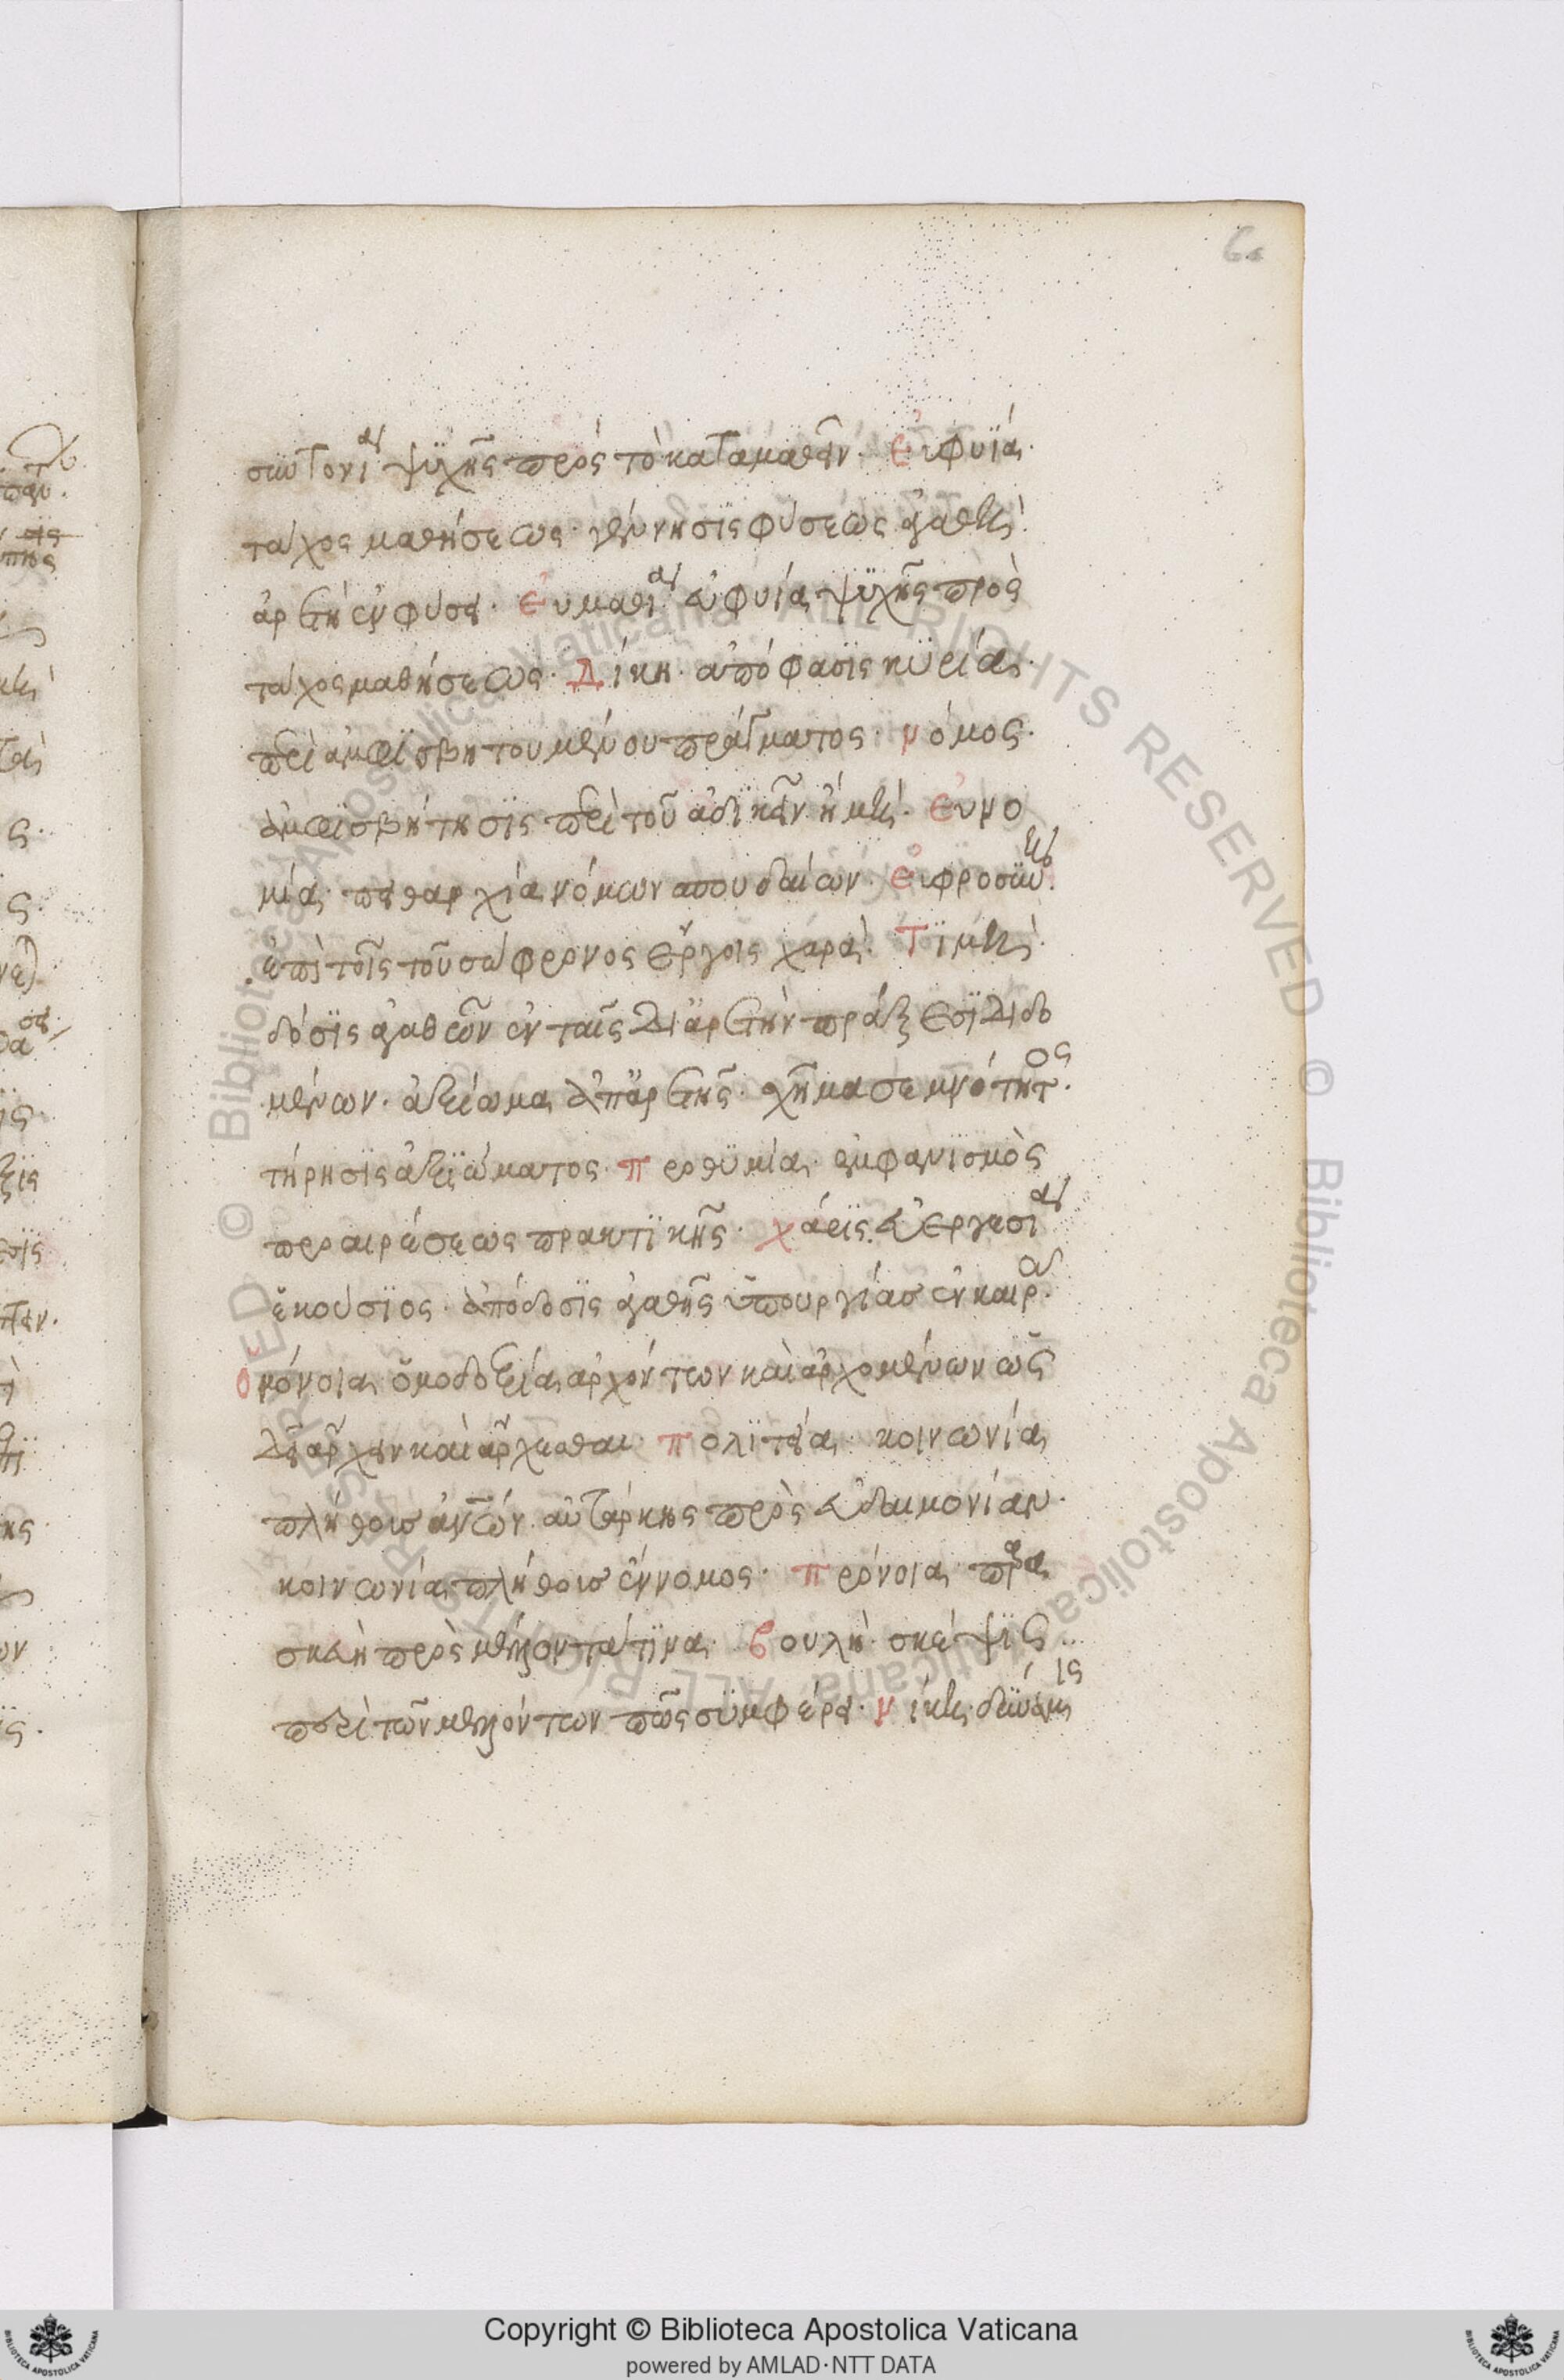 συντονία ψυχῆς πρὸς τὸ καταμαθεῖν· εὐφυΐα·
τάχος μαθήσεως· γέννησις φύσεως ἀγαθή·
ἀρετὴ ἐν φύσει· εὐμαθία εὐφυΐα ψυχῆς πρὸς
τάχος μαθήσεως· Δίκη· ἀπόφασις κυρία
περὶ ἀμφισβητουμένου πράγματος· νόμος·
ἀμφισβήτησις περὶ τοῦ ἀδικεῖν ἢ μή· εὐνο
μία· πειθαρχία νόμων σπουδαίων· εὐφροσύνη·
ἐπὶ τοῖς τοῦ σώφρονος ἔργοις χαρά· Τιμή·
δόσις ἀγαθῶν ἐν ταῖς δι' ἀρετὴν πράξεσι διδο
μένων· ἀξίωμα ἀπ' ἀρετῆς· σχῆμα σεμνότητος·
τήρησις ἀξιώματος· προθυμία· ἐμφανισμὸς
προαιρέσεως πρακτικῆς· χάρις· εὐεργεσία
ἑκούσιος· ἀπόδοσις ἀγαθῆς ὑπουργίας ἐν καιρῷ·
ὁμόνοια ὁμοδοξία ἀρχόντων καὶ ἀρχομένων ὡς
δεῖ ἄρχειν καὶ ἄρχεσθαι· πολιτεία· κοινωνία
πλήθους ἀνῶν αὐτάρκης πρὸς εὐδαιμονίαν·
κοινωνία πλήθους ἔννομος· πρόνοια παρα
σκευὴ πρὸς μέλλοντά τινα· βουλή· σκέψις
περὶ τῶν μελλόντων πῶς συμφέρει· νίκη δύναμις
Copyright © Biblioteca Apostolica Vaticana
powered by AMLAD·NTT DATA